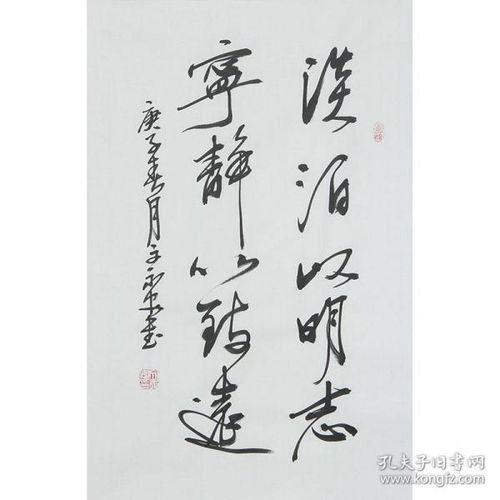 淡泊以明志
宁静以致远
庚子春月
孔夫子旧书网
www.kongfz.com